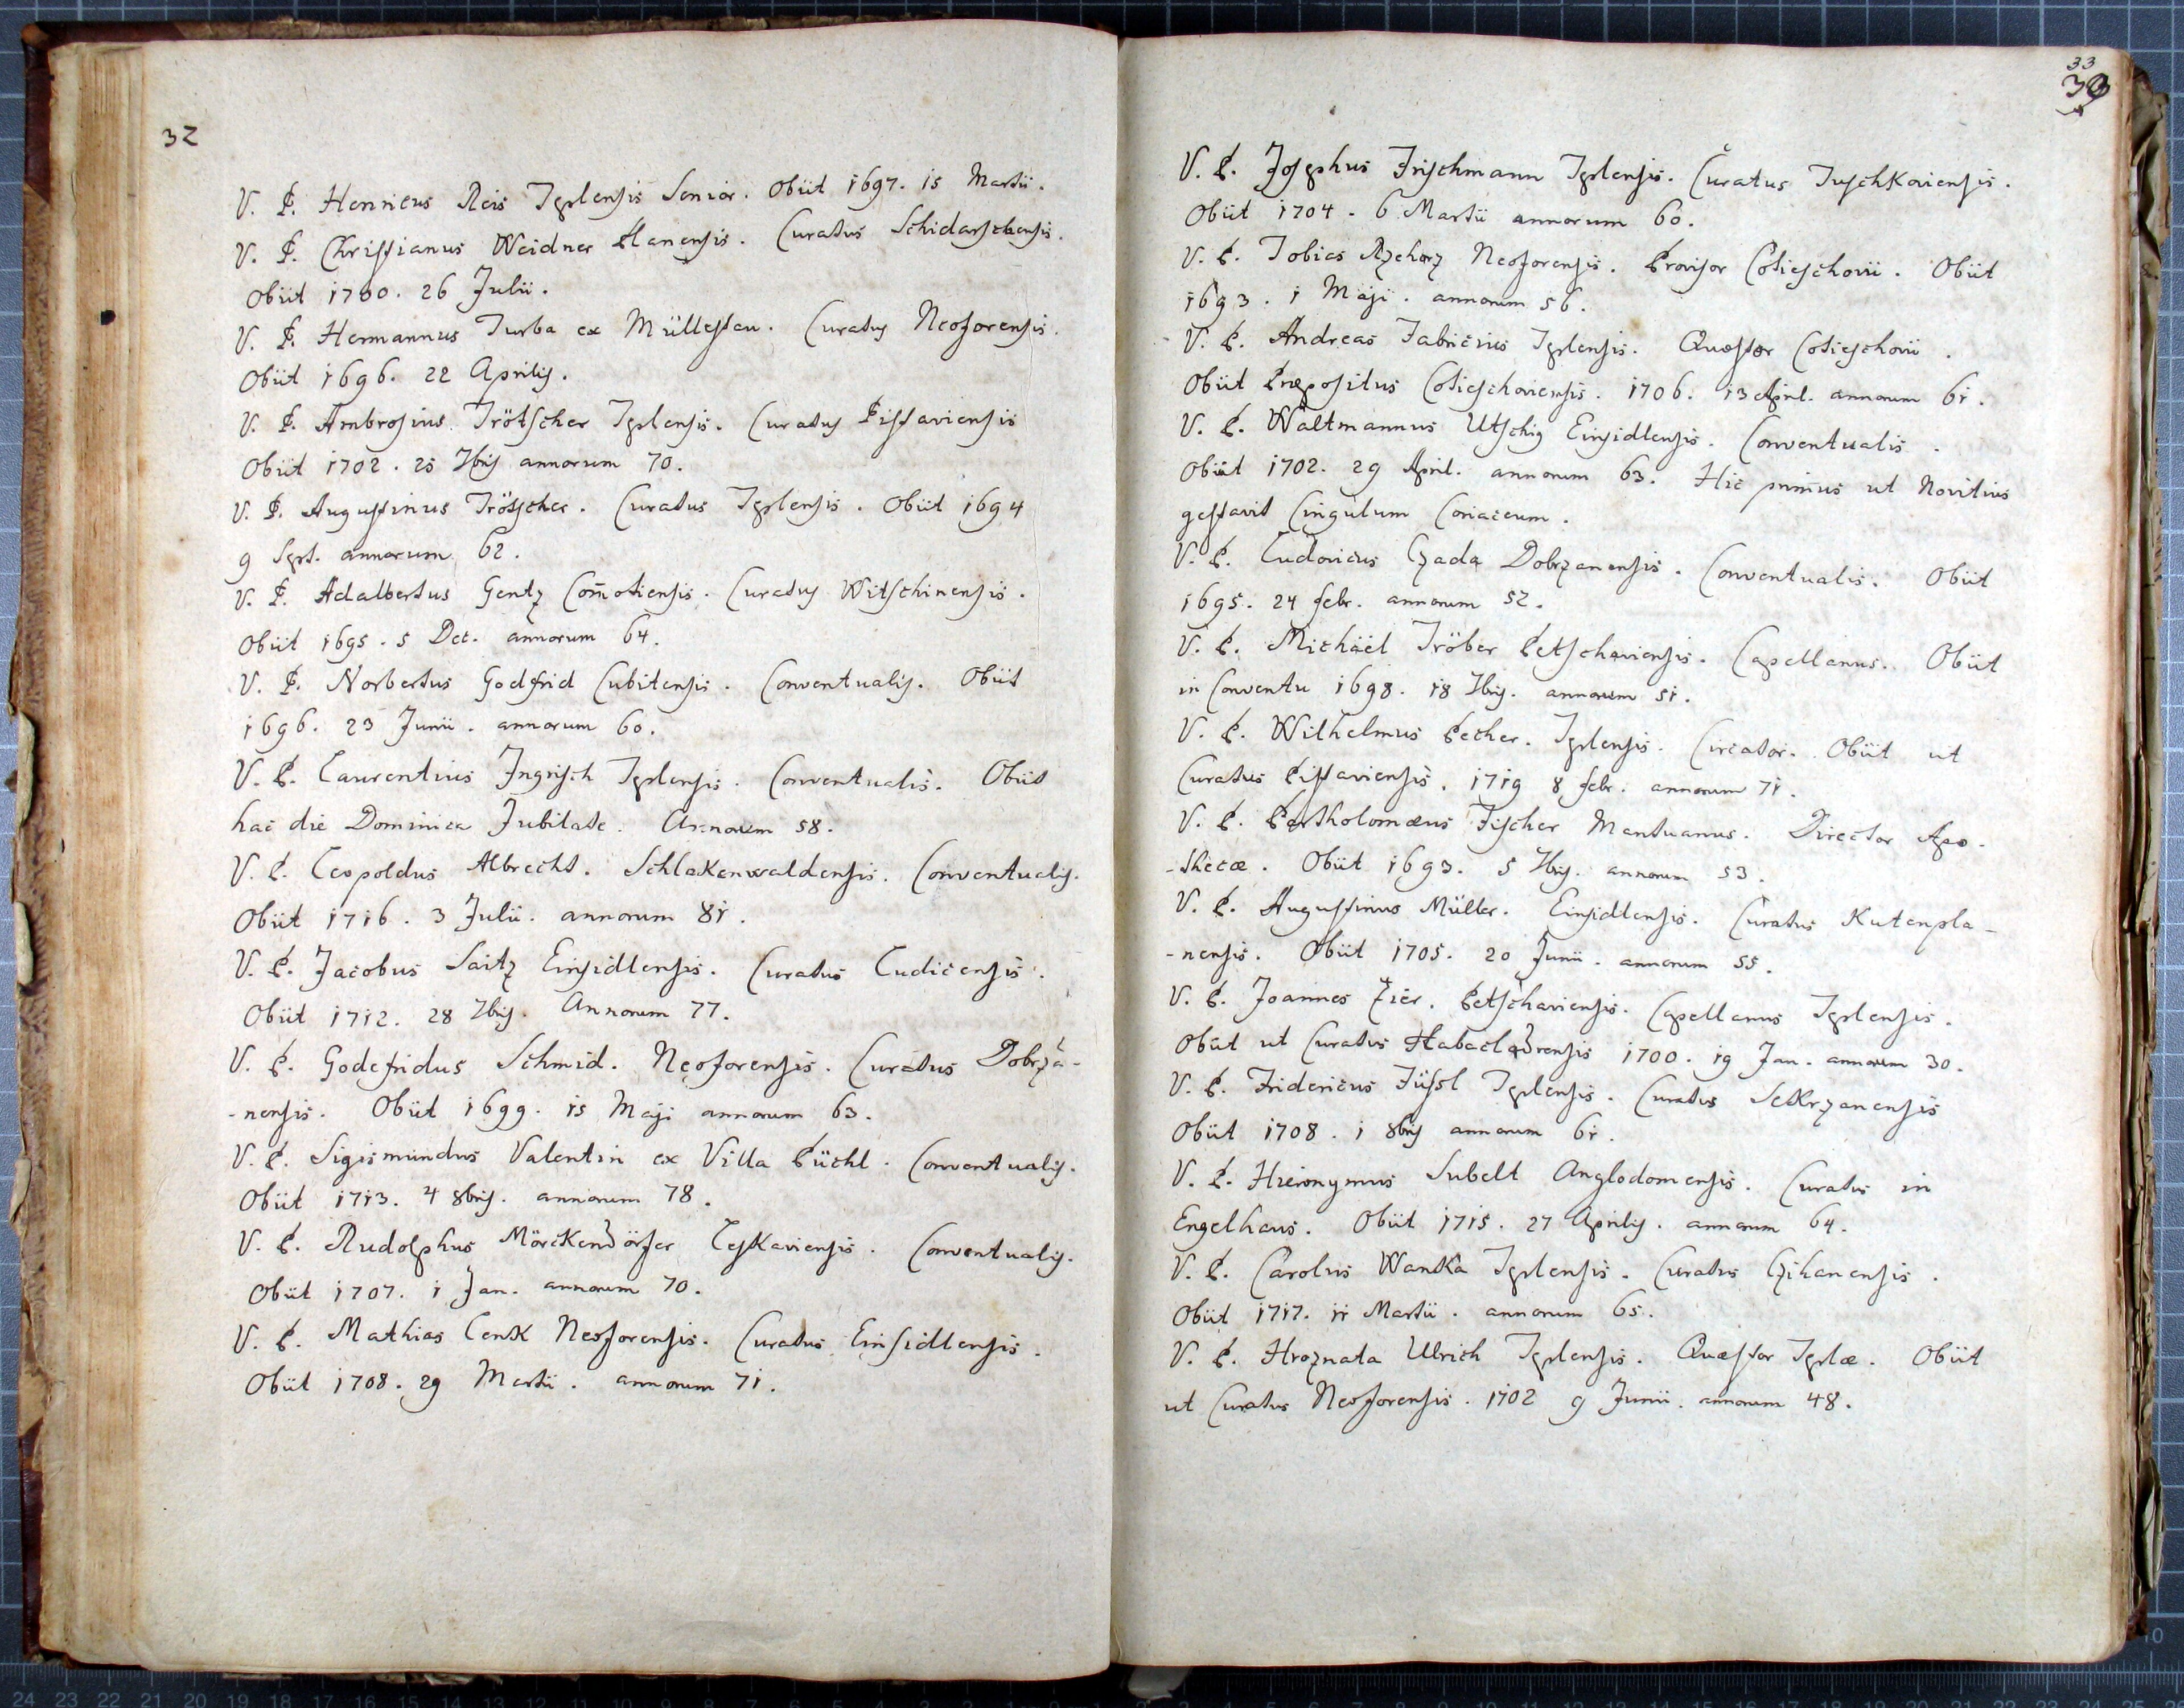 32
V. P. Henricus Reis Teplensis Senior. Obiit 1697. 15 Martii.
V. P. Christianus Weidner Planensis. Curatus
Obiit 1700. 26 Julii.
V. P. Hermannus Turba ex Müllestau. Curatus Neoforensis.
Obiit 1696. 22 Aprilis.
V. P. Ambrosius Trötscher Teplensis. Curatus Pistaviensis
Obiit 1702. 25 7bris annorum 70.
V. P. Augustinus Trötscher. Curatus Teplensis. Obiit 1694
9 Sept. annorum 62.
V. P. Adalbertus Gentz Com̄otiensis. Curatus Witschinensis.
Obiit 1695. 5 Dec. annorum 64.
V. P. Norbertus Godfrid Cubitensis. Conventualis. Obiit
1696. 23 Junii. annorum 60.
V. P. Laurentius Ingrisch Teplensis. Conventualis. Obiit
hac die Dominica Jubilate. Annorum 58.
V. P. Leopoldus Albrecht. Schlakenwaldensis. Conventualis.
Obiit 1716. 3 Julii. annorum 81.
V. P. Jacobus Saitz Einsidlensis. Curatus Ludicensis.
Obiit 1712. 28 7bris. Annorum 77.
V. P. Godefridus Schmid. Neoforensis. Curatus Dobrza-
-nensis. Obiit 1699. 15 Maji annorum 63.
V. P. Sigismundus Valentin ex Villa Püchl. Conventualis.
Obiit 1713. 4 8bris. annorum 78.
V. P. Rudolphus Mörckendörfer Leskaviensis. Conventualis.
Obiit 1707. 1 Jan. annorum 70.
V. P. Mathias Lenk Neoforensis. Curatus Einsidlensis.
Obiit 1708. 29 Martii. annorum 71.
33
V. P. Josephus Frischmann Teplensis. Curatus Tuschkoviensis.
Obiit 1704. 6 Martii annorum 60.
V. P. Tobias Rzehorz Neoforensis. Provisor Cotieschovii. Obiit
1693. 1 Maji. annorum 56.
V. P. Andreas Fabricius Teplensis. Quæstor Cotieschovii.
Obiit Præpositus Cotieschoviensis. 1706. 13 April. annorum 61.
V. P. Waltmannus Utschig Einsidlensis. Conventualis.
Obiit 1702. 29 April. annorum 63. Hic primus ut Novitius
gestavit Cingulum Coriaceum.
V. P. Ludovicus Czada Dobrzanensis. Conventualis. Obiit
1695. 24 febr. annorum 52.
V. P. Michäel Tröber Petschaviensis. Capellanus. Obiit
in Conventu 1698. 18 7bris. annorum 51.
V. P. Wilhelmus Pecher. Teplensis. Circator. Obiit ut
Curatus Pistaviensis. 1719 8 febr. annorum 71.
V. P. Bartholomæus Fischer Mantuanus. Director Apo-
-thecæ. Obiit 1693. 5 7bris. annorum 53.
V. P. Augustinus Müller. Einsidlensis. Curatus Kutenpla-
-nensis. Obiit 1705. 20 Junii. annorum 55.
V. P. Joannes Petschaviensis. Capellanus Teplensis.
Obiit ut Curatus Habacladrensis 1700. 19 Jan. annorum 30.
V. P. Fridericus Füssl Teplensis. Curatus Setkrzanensis
Obiit 1708. 1 8bris annorum 61.
V. P. Hieronymus Subelt Anglodomensis. Curatus in
Engelhaus. Obiit 1715. 27 Aprilis. annorum 64.
V. P. Carolus Wanka Teplensis. Curatus Czihanensis.
Obiit 1717. 11 Martii. annorum 65.
V. P. Hroznata Ulrich Teplensis. Quæstor Teplæ. Obiit
ut Curatus Neoforensis. 1702 9 Junii. annorum 48.